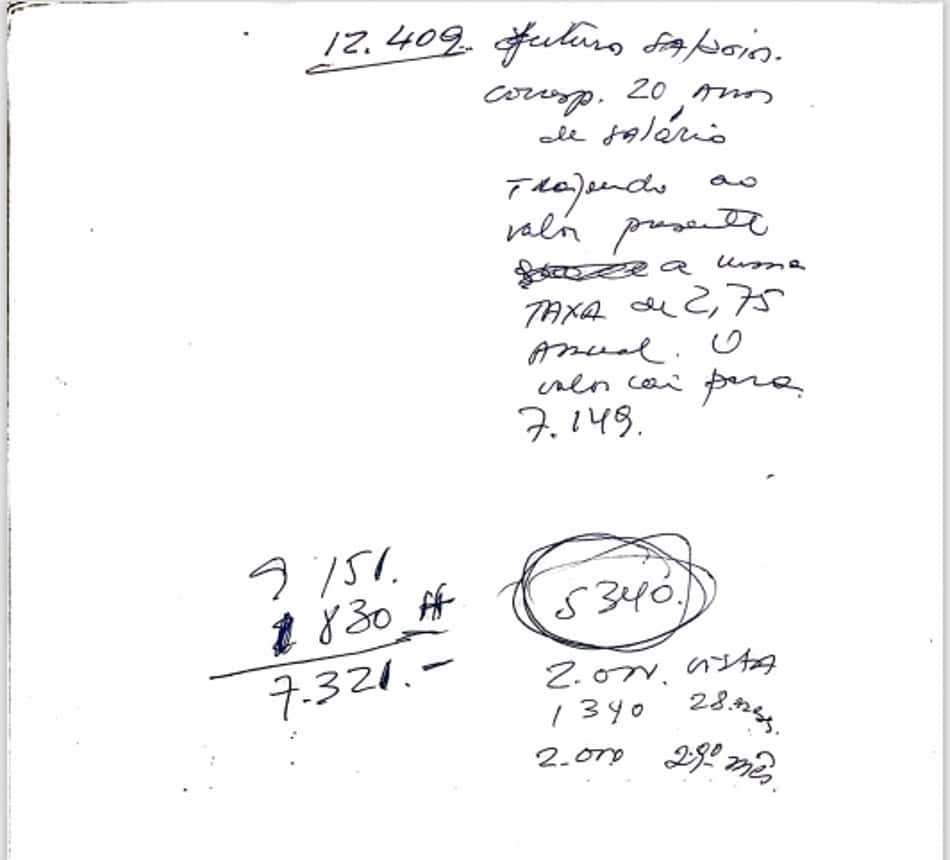 12.409. futuro salário.
corresp. 20 Anos
de salário
Trazendo ao
valor presente
a mesma
TAXA de 2,75
Anual. O
valor cai para
7.149.
9 151.
1 830
7.321.-
5 340.
2.000. vista
1 340 28 meses.
2.000 29º mês.